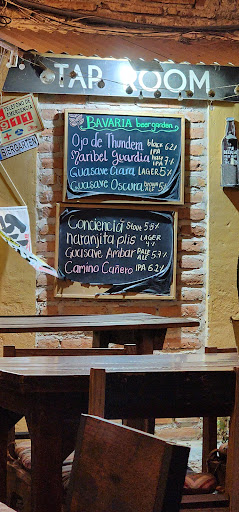 TAP ROOM
TELÉFONO DE
EMERGENCIA
911
BIERGARTEN
BAVARIA beergarden
Ojo de Thundera black IPA 6.2
Maribel Guardia hazy IPA 7%
Guasave Clara LAGER 5%
Guasave Oscura 5%
Conciencia Stout 5.5%
naranjita plis LAGER 4%
Guasave Ambar PALE ALE 5%
Camino Cañero IPA 6.2%